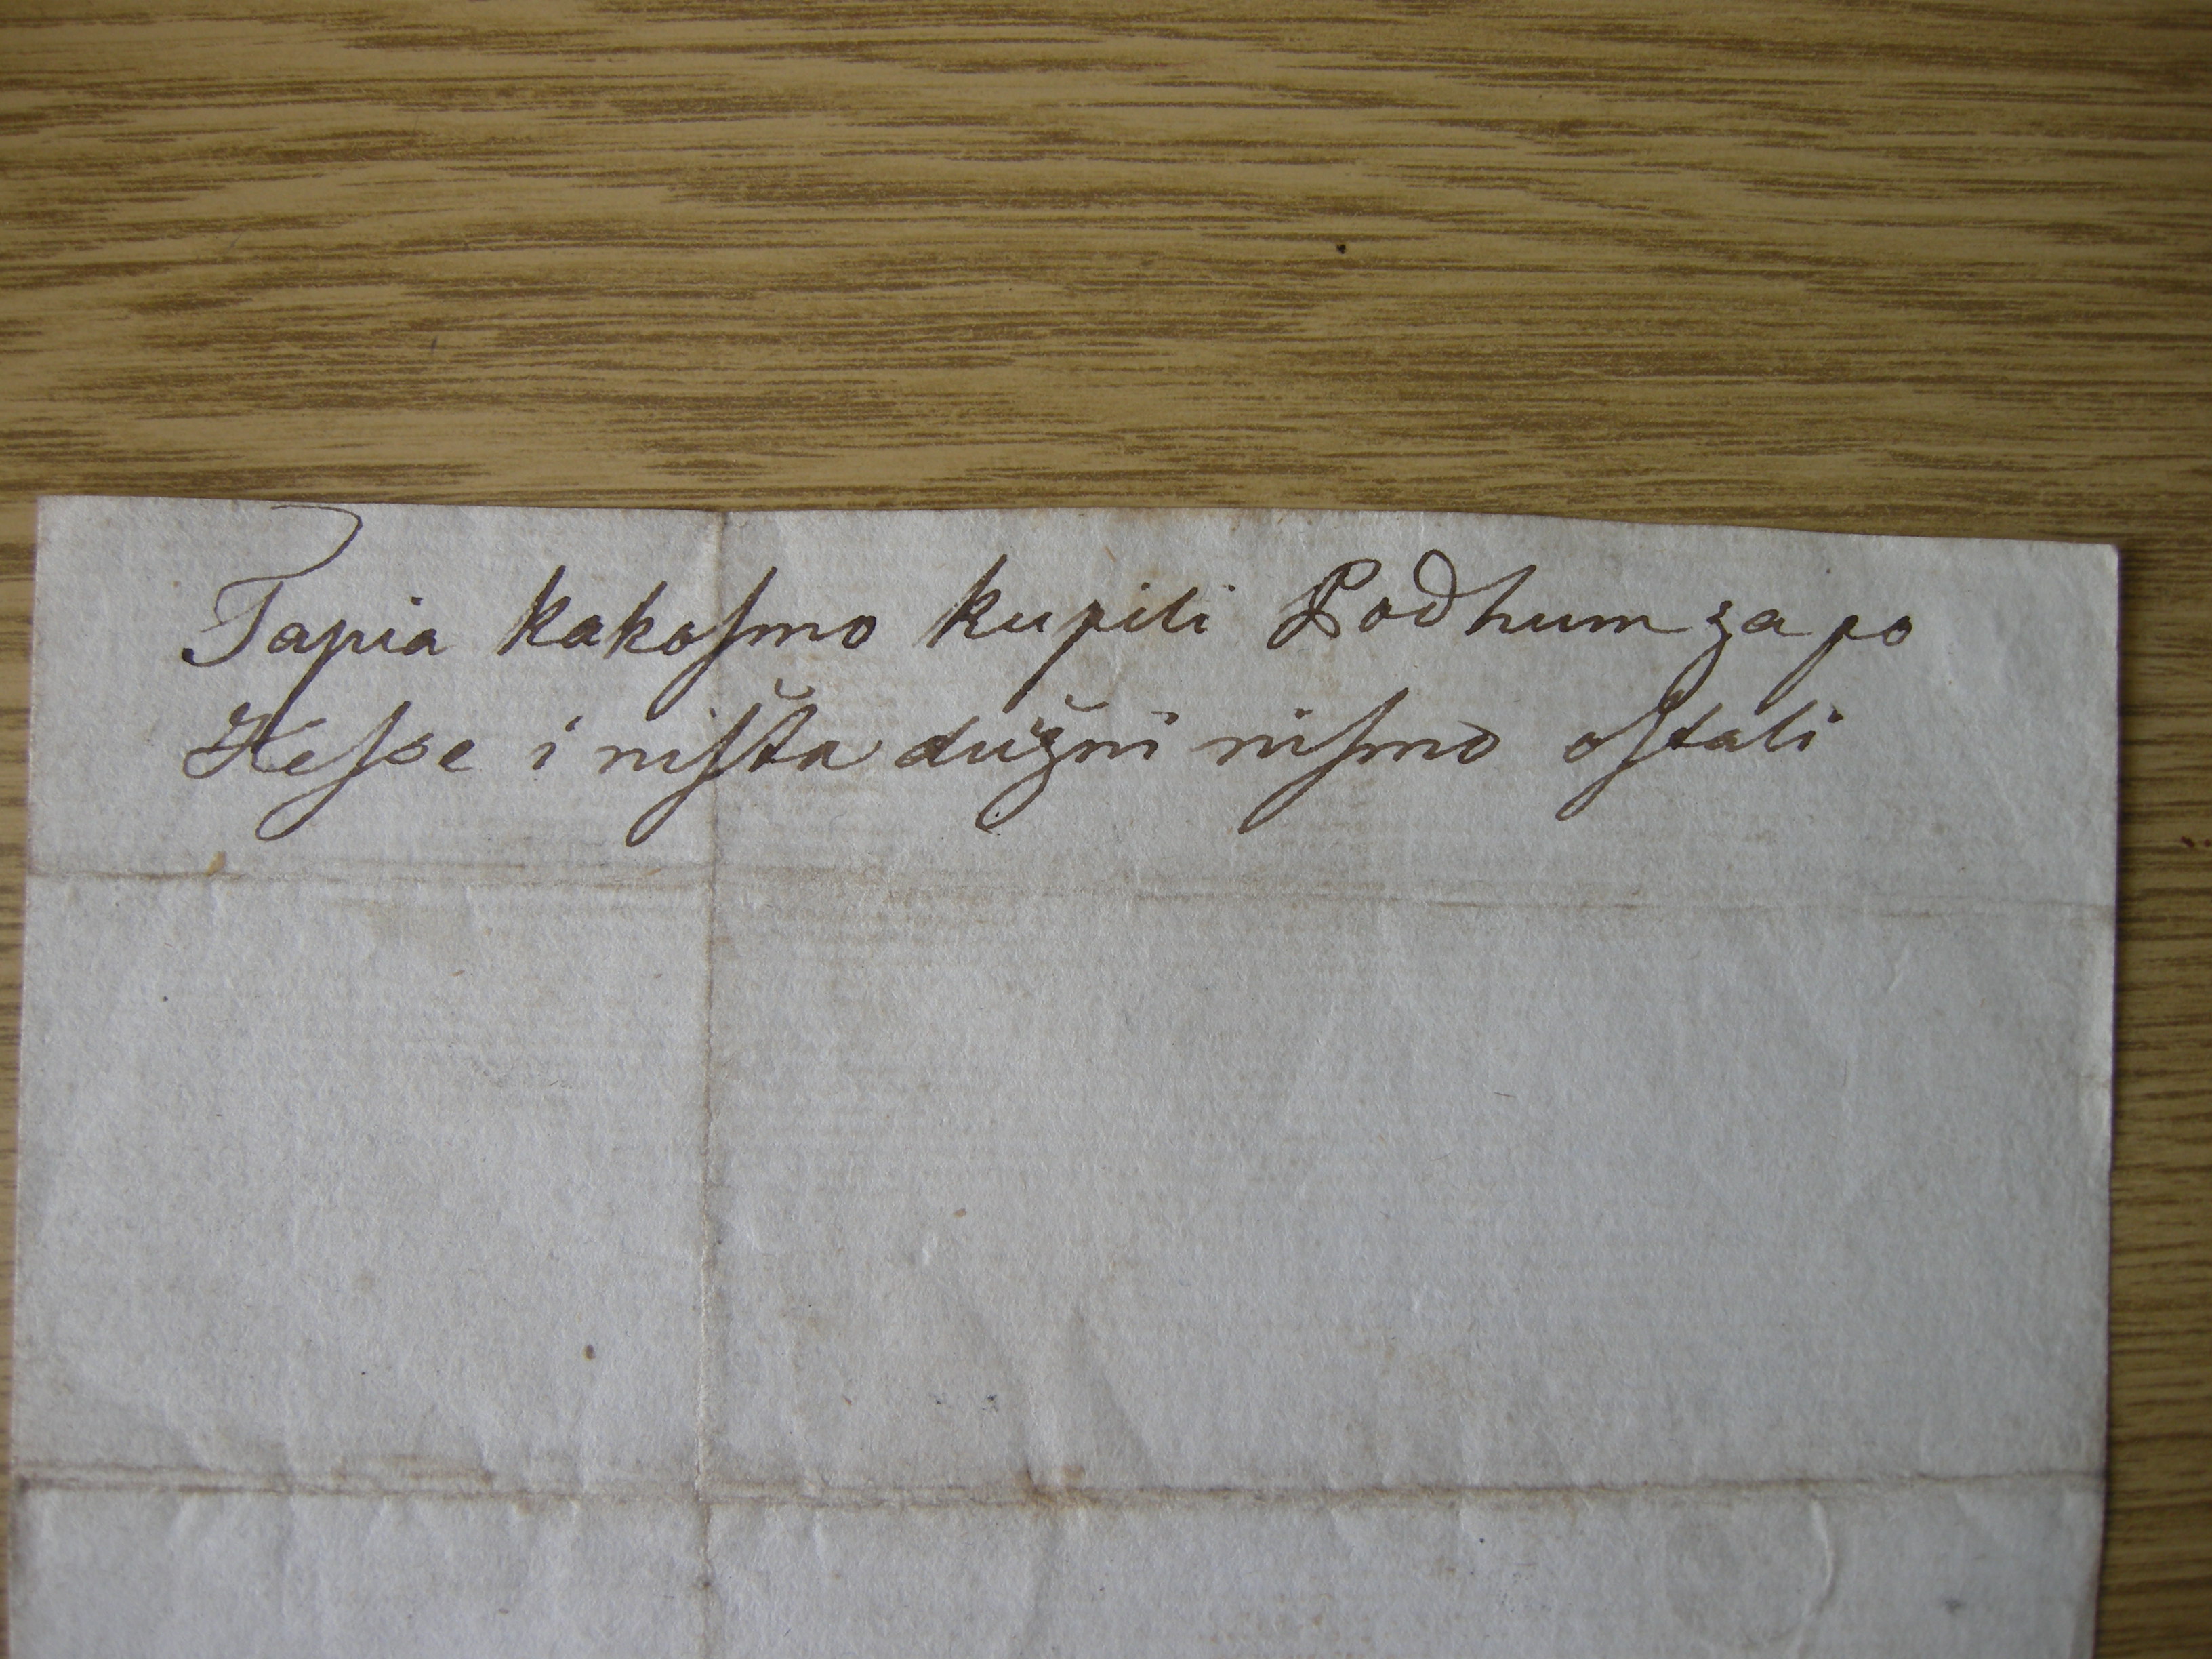 Tapia kakoſmo kupili Podhum za po
Keſse i niſšta dužni niſmo oſtali